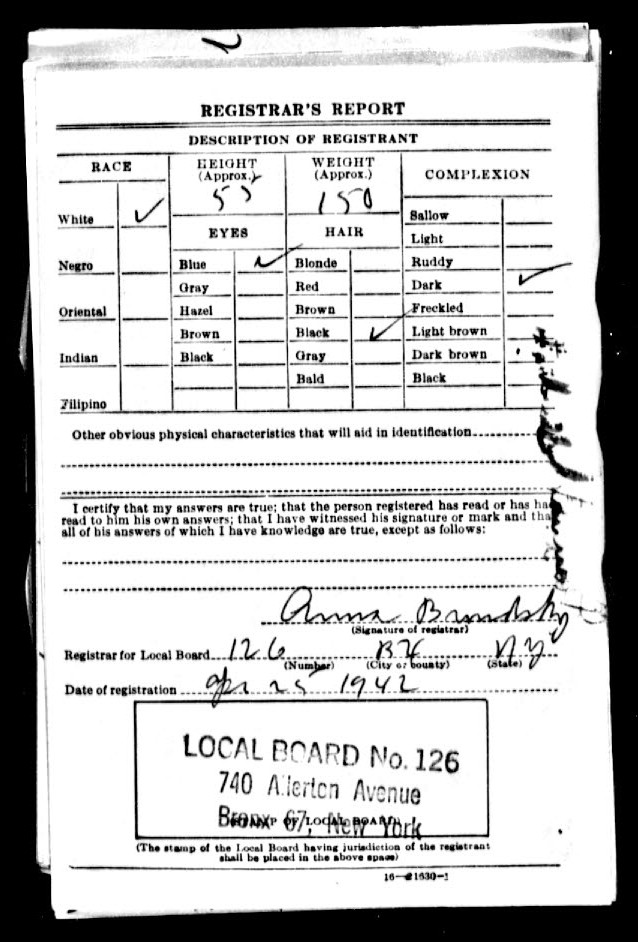 REGISTRAR'S REPORT
DESCRIPTION OF REGISTRANT
RACE
HEIGHT
(Approx.)
WEIGHT
(Approx.)
COMPLEXION
White ✓
150
Sallow
EYES
HAIR
Light
Negro
Blue ✓
Blonde
Ruddy
Gray
Red
Dark ✓
Oriental
Hazel
Brown
Freckled
Brown
Black ✓
Light brown
Indian
Black
Gray
Dark brown
Bald
Black
Filipino
Other obvious physical characteristics that will aid in identification
I certify that my answers are true; that the person registered has read or has ha
read to him his own answers; that I have witnessed his signature or mark and tha
all of his answers of which I have knowledge are true, except as follows:
Anna
(Signature of registrar)
Registrar for Local Board 126 BX NY
(Number) (City or county) (State)
Date of registration Apr 25 1942
LOCAL BOARD No. 126
740 Allerton Avenue
Bronx 67, New York
(STAMP OF LOCAL BOARD)
(The stamp of the Local Board having jurisdiction of the registrant
shall be placed in the above space)
16—21630-1